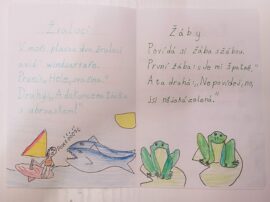 Žraloci
V moři plavou dva žraloci
a vidí windsurfaře.
První: „Hele, svačina."
Druhý: „A dokonce na tácku
a s ubrouskem!"
Žáby
Povídá si žába s žábou.
První žába: „Je mi špatně."
A ta druhá: „Nepovídej, no,
jsi nějaká zelená."